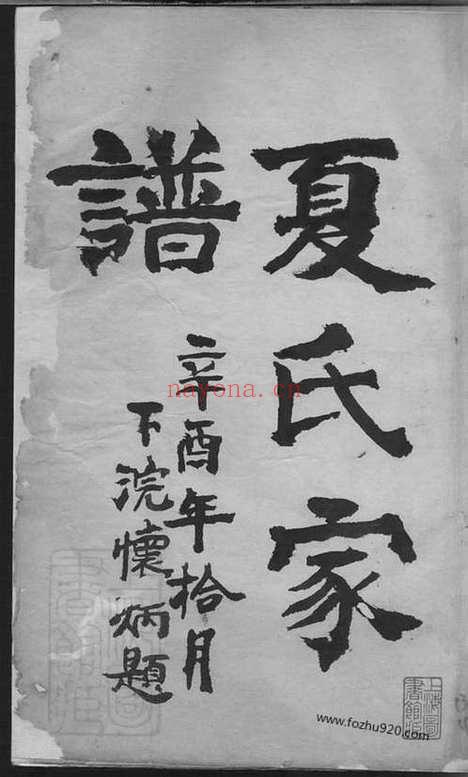 夏氏家
譜
辛酉年拾月
下浣懷炳題
nayona.cn
上海圖
書館藏
www.fozhu920.com